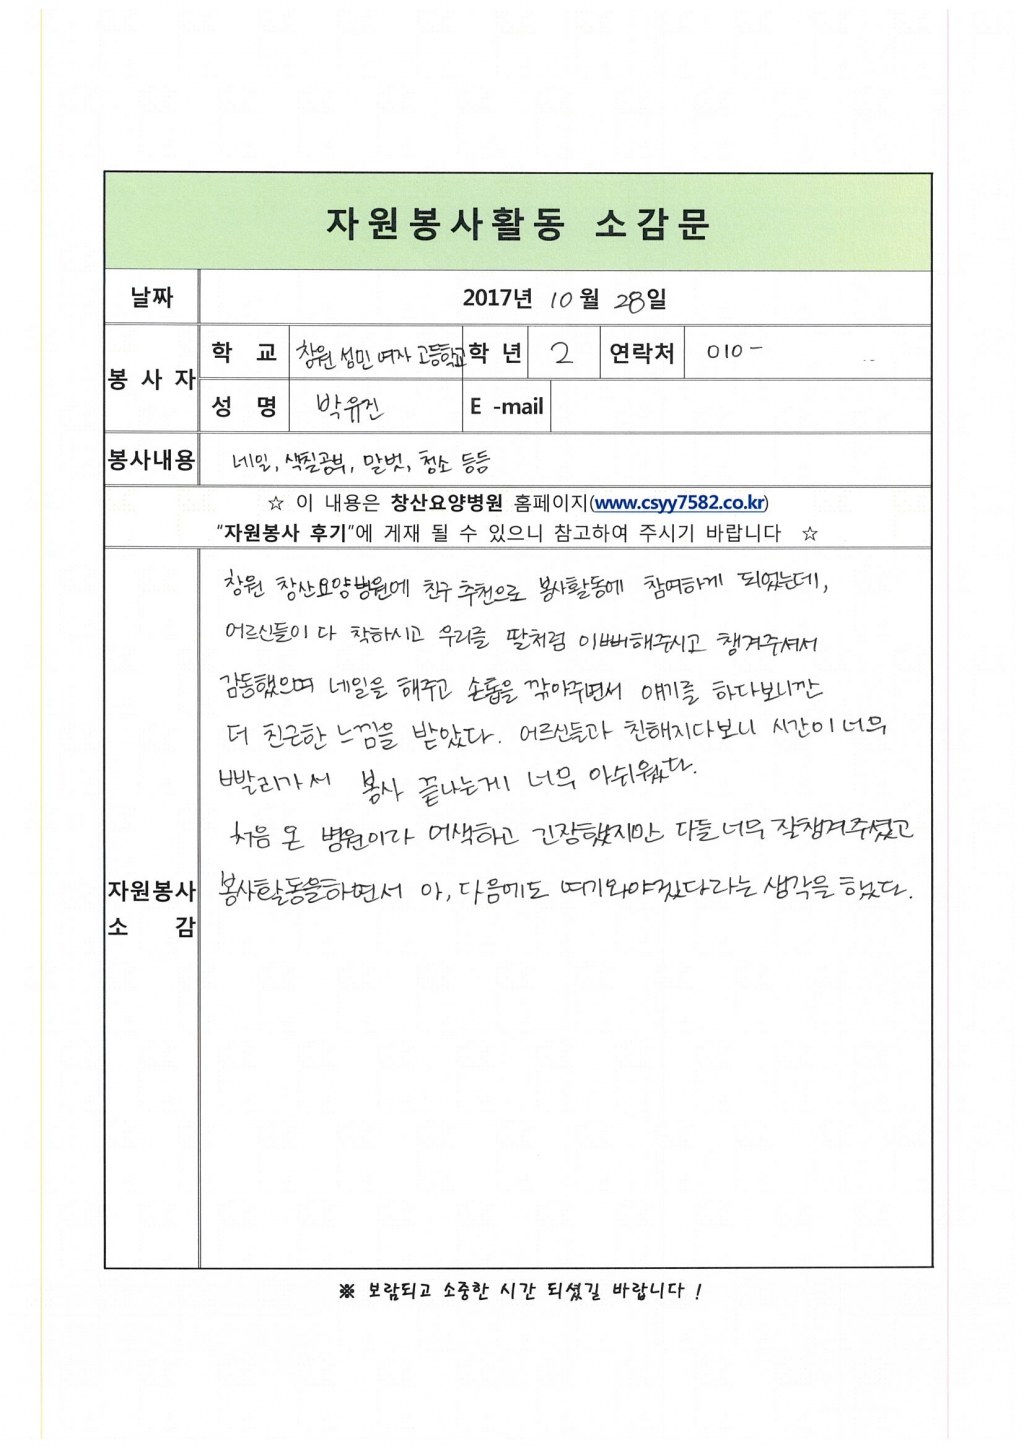 자원봉사활동 소감문
날짜 2017년 10월 28일
봉사자 학교 창원 성민 여자 고등학교 학년 2 연락처 010-
성명 박유진 E-mail
봉사내용 네일, 색칠공부, 말벗, 청소 등등
☆ 이 내용은 창산요양병원 홈페이지(www.csyy7582.co.kr)
"자원봉사 후기"에 게재 될 수 있으니 참고하여 주시기 바랍니다 ☆
자원봉사 소감
창원 창산요양병원에 친구 추천으로 봉사활동에 참여하게 되었는데,
어르신들이 다 착하시고 우리를 딸처럼 이뻐해주시고 챙겨주셔서
감동했으며 네일을 해주고 손톱을 깎아주면서 얘기를 하다보니깐
더 친근한 느낌을 받았다. 어르신들과 친해지다보니 시간이 너무
빨리가서 봉사 끝나는게 너무 아쉬웠다.
처음 온 병원이라 어색하고 긴장했지만 다들 너무 잘챙겨주셨고
봉사활동을하면서 아, 다음에도 여기와야겠다라는 생각을 했다.
※ 보람되고 소중한 시간 되셨길 바랍니다 !